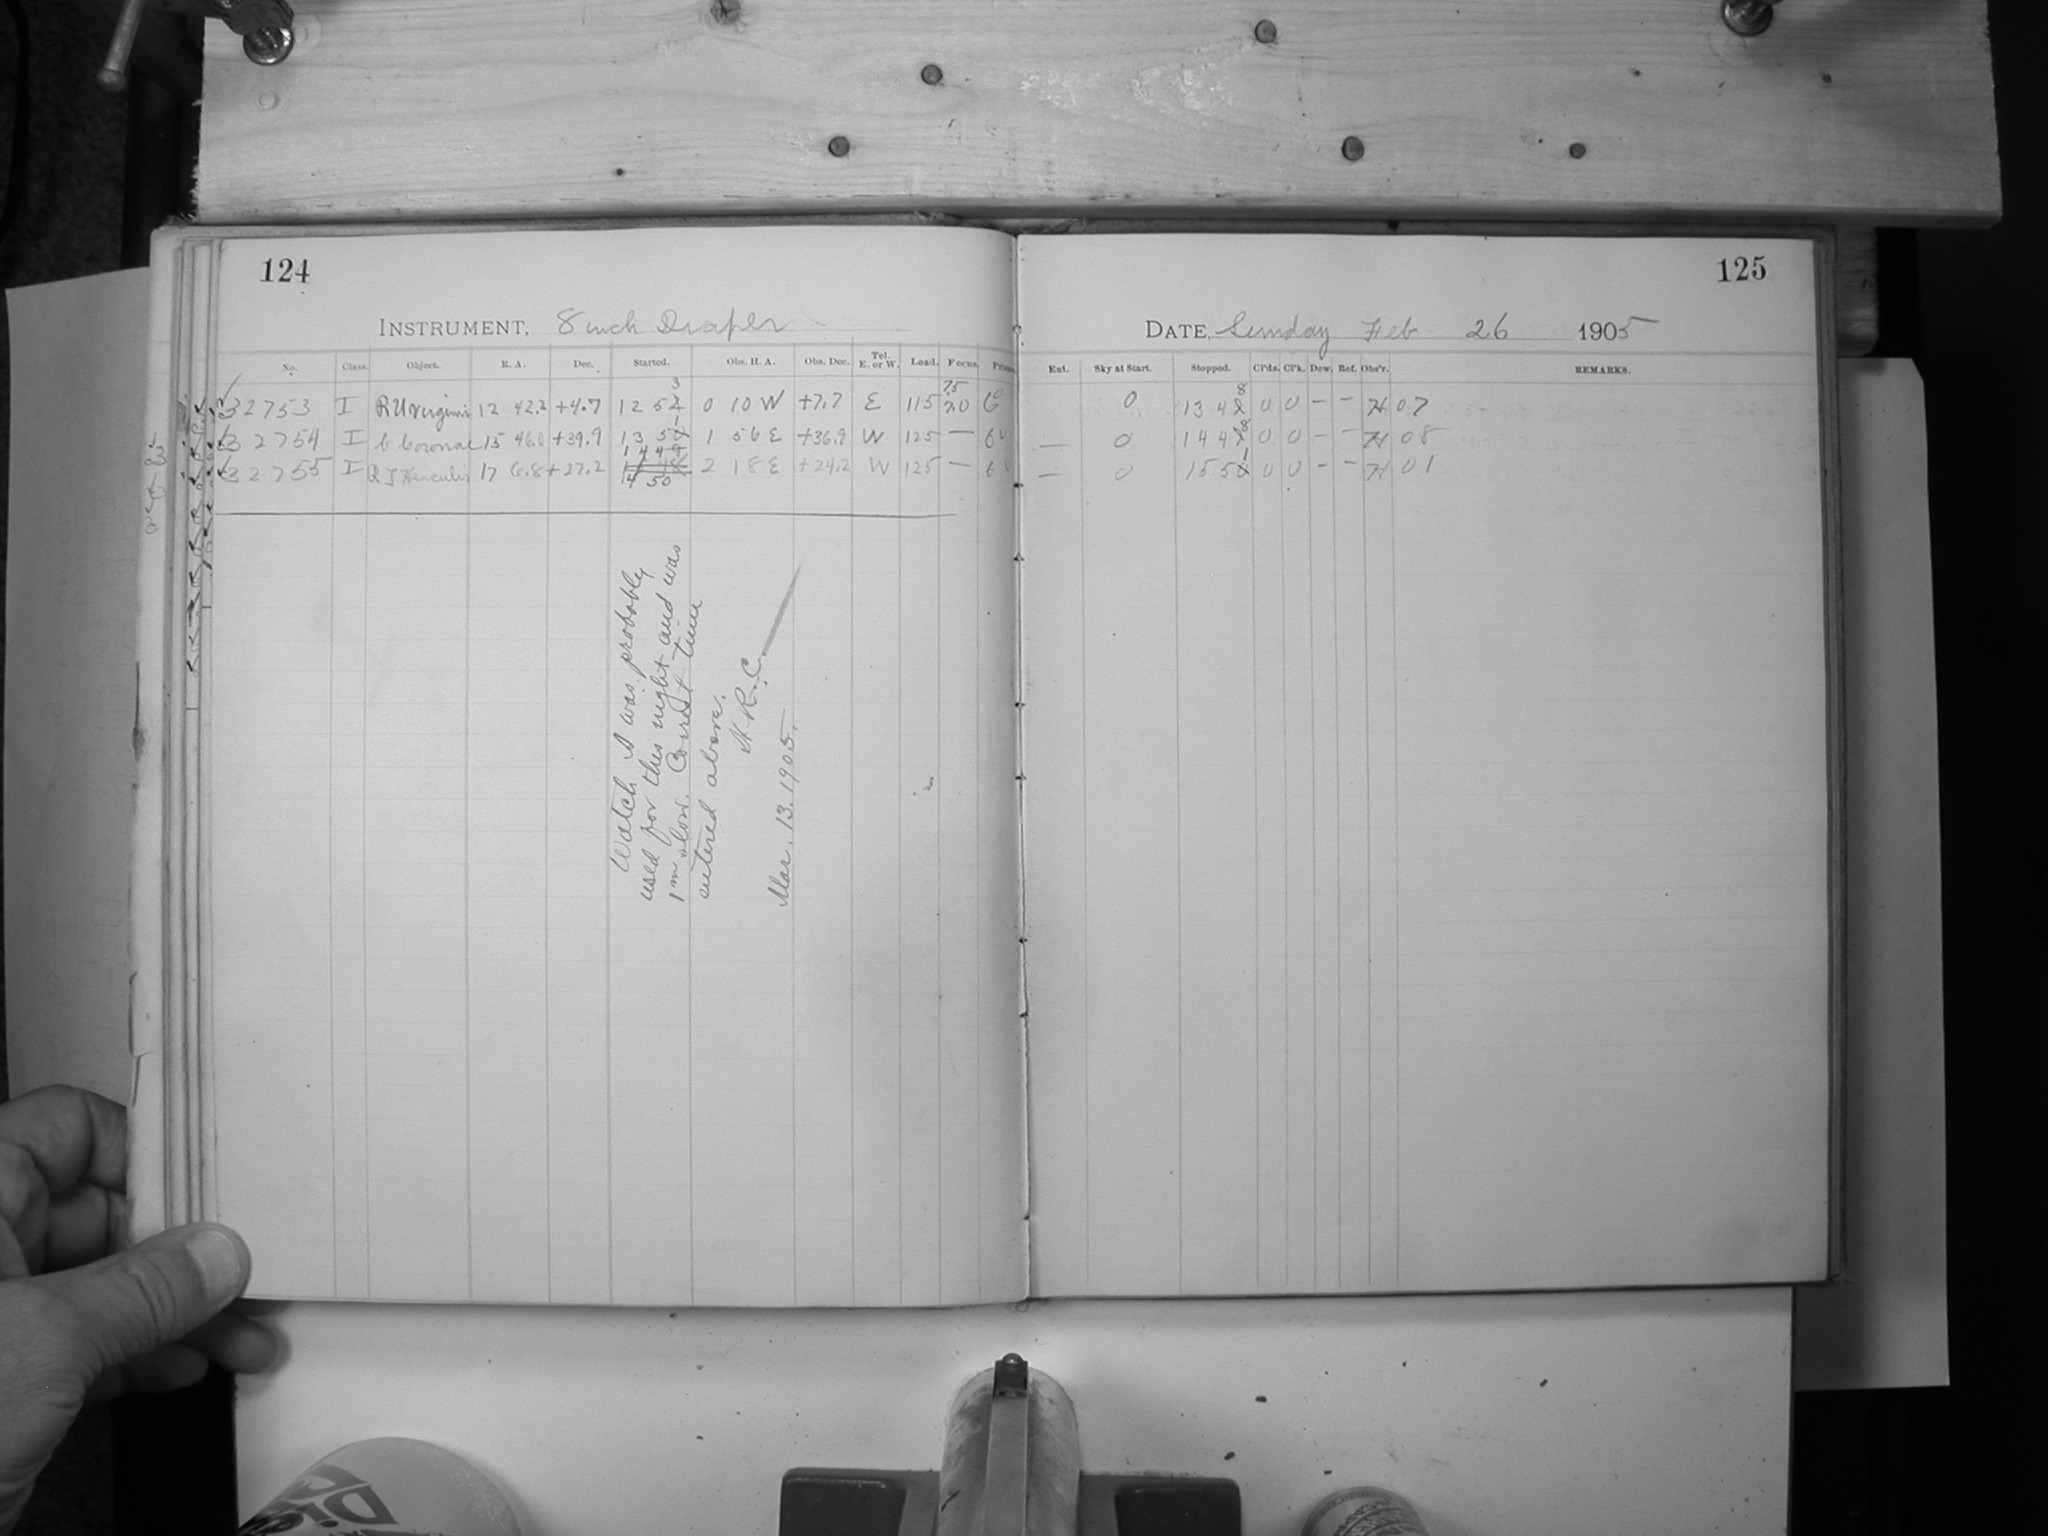 124
INSTRUMENT, 8 inch Draper
No. Class. Object. R. A. Dec. Started. Obs. H. A. Obs. Dec. Tel. E. or W. Load. Focus.
32753 I RU Virginis 12 42.2 +4.7 12 52 3 0 10 W +7.7 E 115 7.0 7.5 6
32754 I Coronae 15 46.0 +39.9 13 5 1 56 E +36.9 W 125 — 6
32755 I Herculis 17 6.8 +27.2 14 50 2 18 E +24.2 W 125 — 6
Watch A was probably
used for this night and was
1 m slow. Correct time
entered above.
W. R. C.
Mar. 13. 1905.
125
DATE, Sunday Feb 26 1905
Ent. Sky at Start. Stopped. Cl'ds. Cl'k. Dew. Ref. Obs'r. REMARKS.
0 13 4 8 0 0 – – 07
— 0 14 4 8 0 0 – – 08
— 0 15 5 1 0 0 – – 01